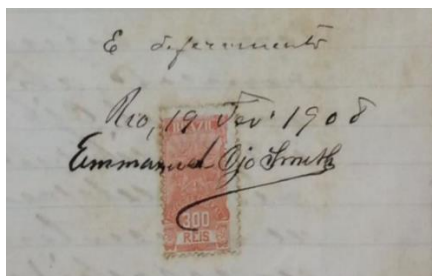 E deferimento
Rio, 19 Fev. 1908
Emmanuel Ojo Smith
300
REIS